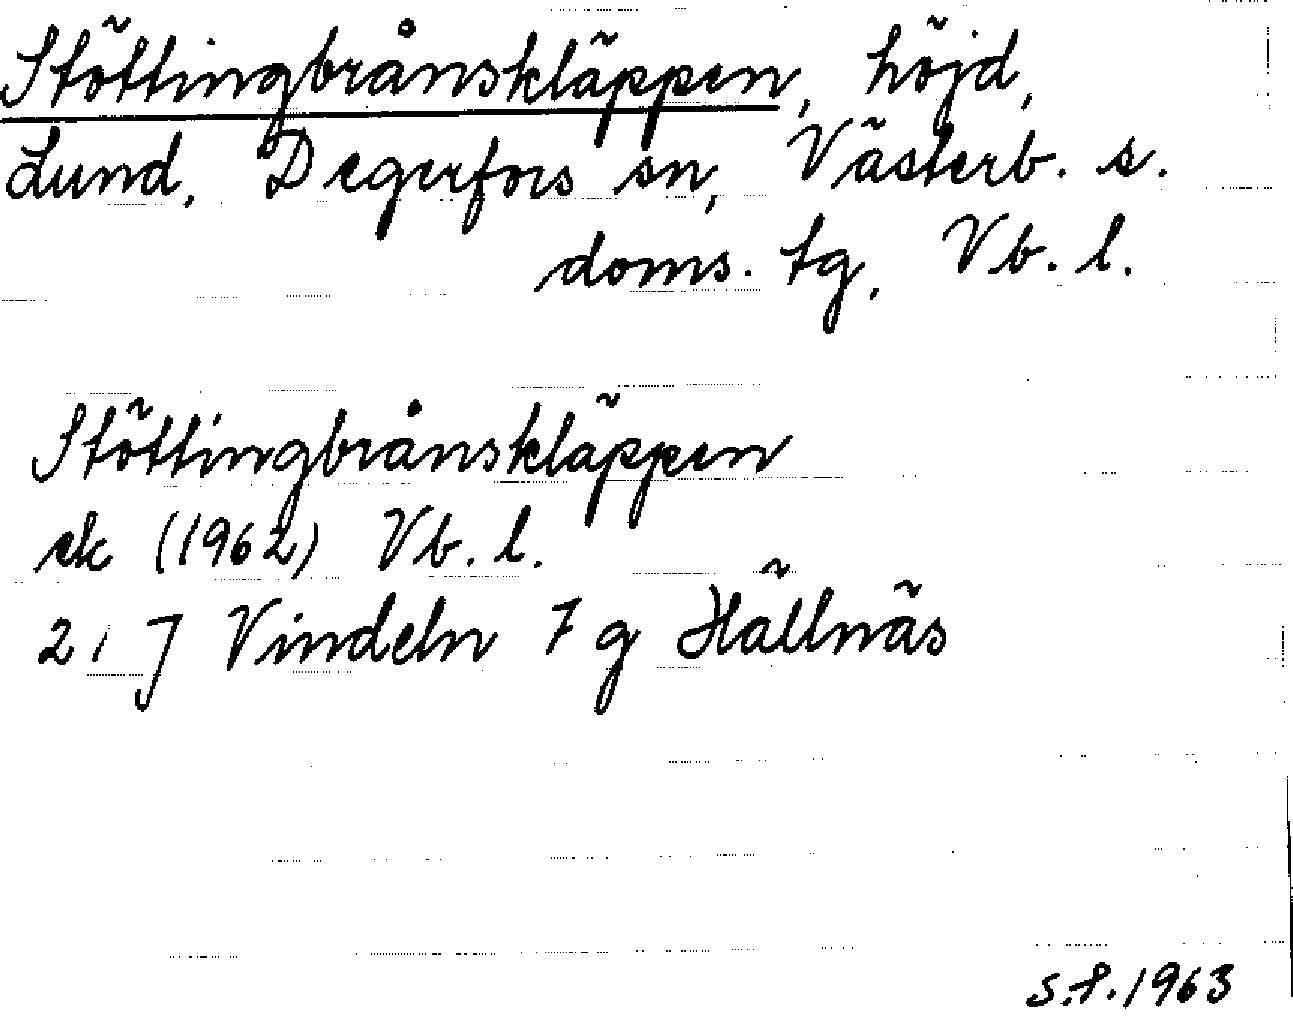 Stöttingbrånskläppen, höjd,
Lund, Degerfors sn, Västerb. s.
doms. tg, Vb. l.
Stöttingbrånskläppen
ek (1962) Vb. l.
21 J Vindeln 7 g Hällnäs
S.F. 1963